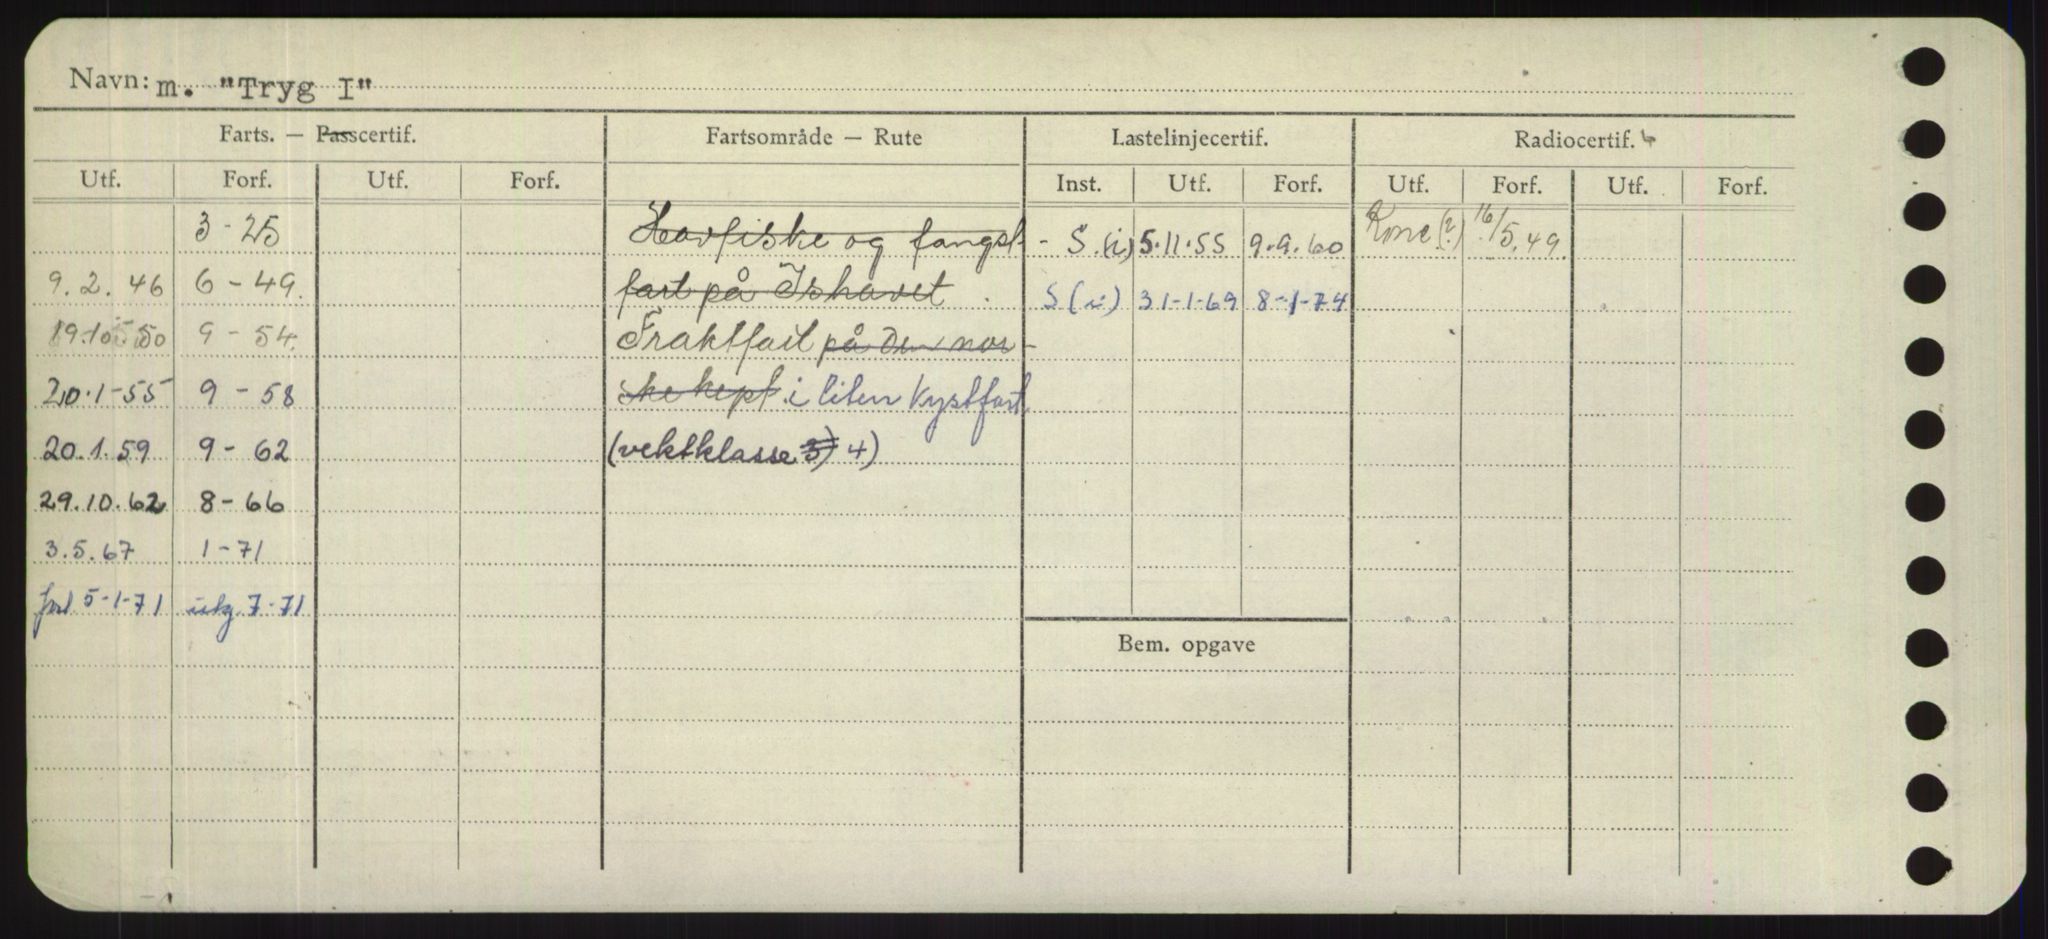 Navn: m. "Tryg I"
Farts. — Passcertif. Fartsområde — Rute Lastelinjecertif. Radiocertif.
Utf. Forf. Utf. Forf. Inst. Utf. Forf. Utf. Forf. Utf. Forf.
3 - 25 Havfiske og fangst- S. (i) 5.11.55 9.9.60 (?) 16/5.49.
9.2.46 6 - 49. fart på Ishavet. S (i) 31-1-69 8-1-74
19.10.50 9 - 54. Fraktfart på den nor-
20.1-55 9 - 58 ske kyst i liten Kystfart
20.1.59 9 - 62 (vektklasse 3) 4)
29.10.62 8 - 66
3.5.67 1 - 71
5-1-71 utg. 7-71
Bem. opgave